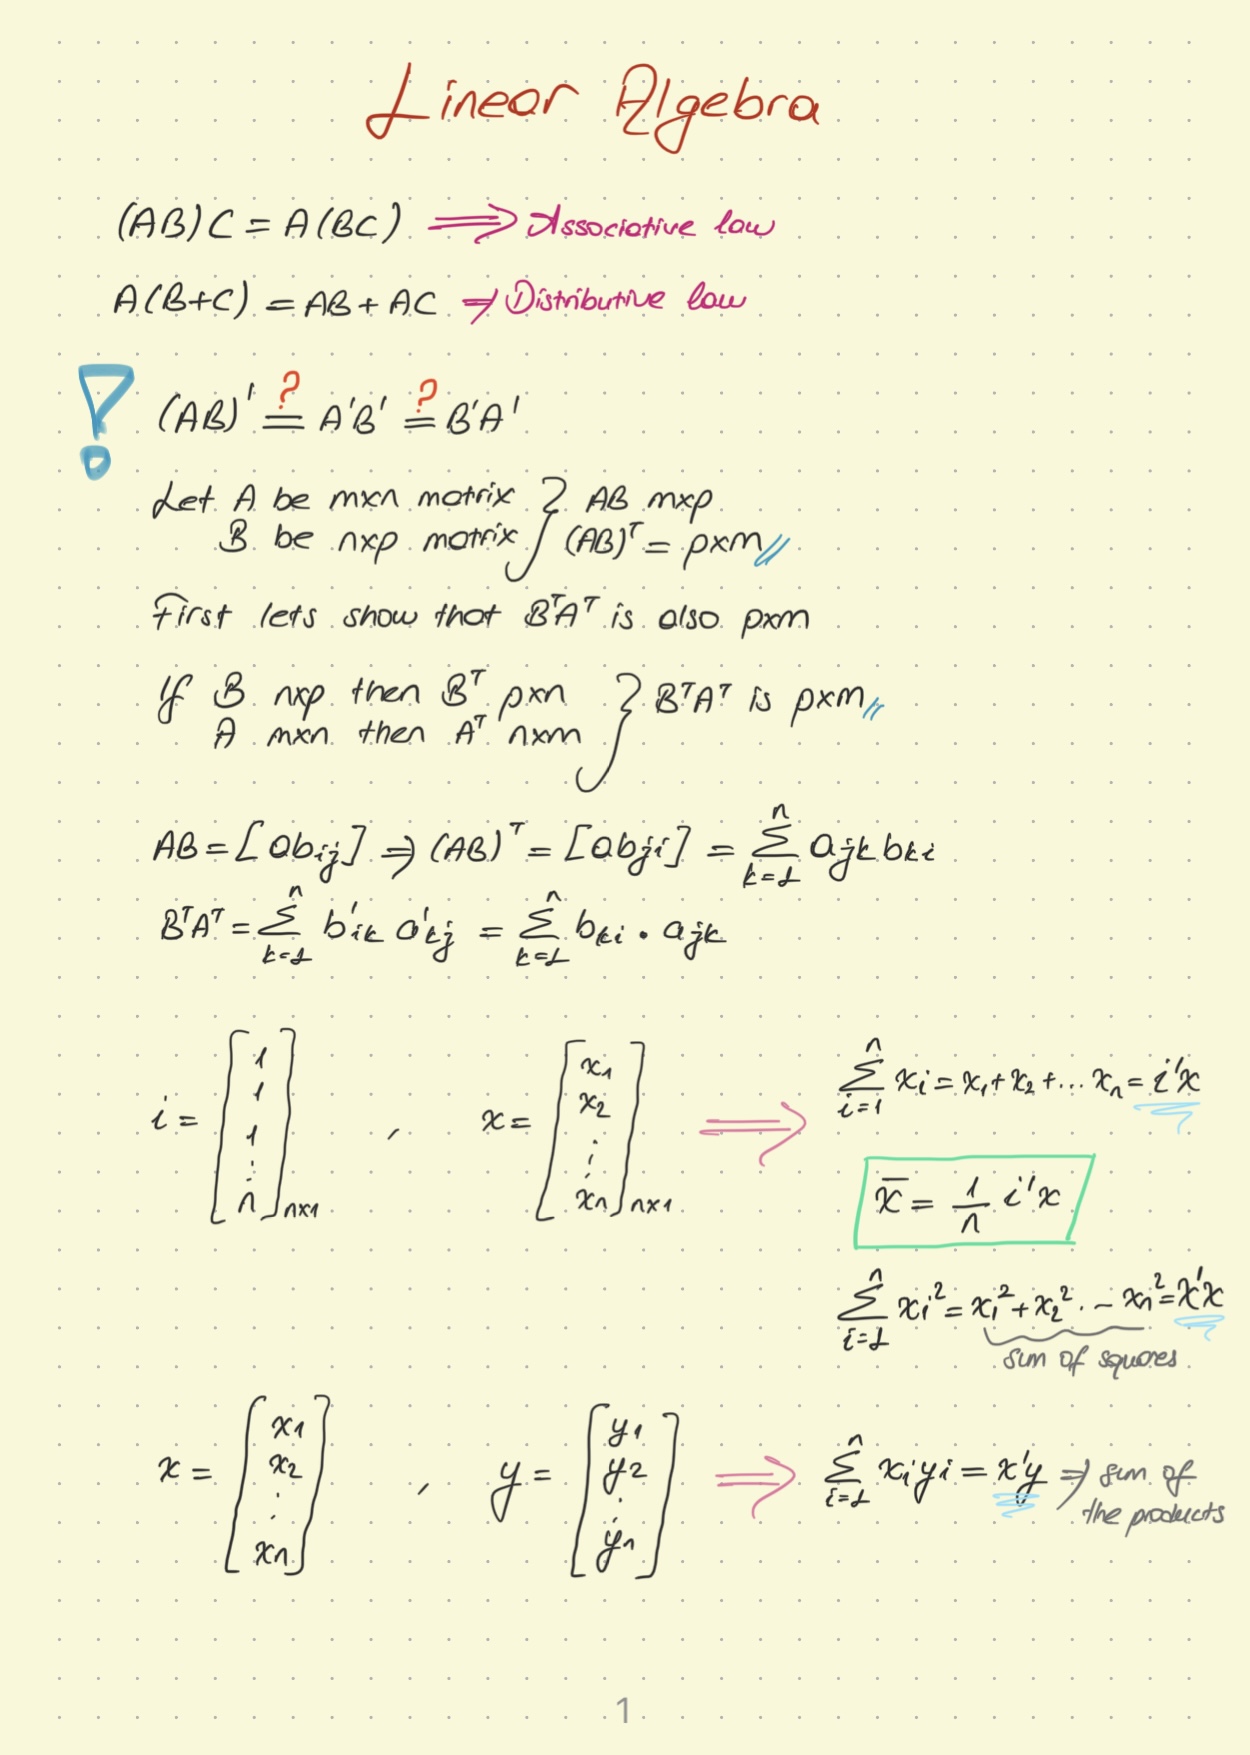 Linear Algebra
(AB)C = A(BC) ⟹ Associative law
A(B+C) = AB + AC ⇒ Distributive law
! (AB)' =? A'B' =? B'A'
Let A be mxn matrix } AB mxp
B be nxp matrix } (AB)ᵀ = pxm //
First lets show that BᵀAᵀ is also pxm
If B nxp then Bᵀ pxn } BᵀAᵀ is pxm //
A mxn then Aᵀ nxm
AB = [ab_ij] ⇒ (AB)ᵀ = [ab_ji] = ∑_{k=1}^{n} a_jk b_ki
BᵀAᵀ = ∑_{k=1}^{n} b'_ik a'_kj = ∑_{k=1}^{n} b_ki · a_jk
i = [1 1 1 ⋮ n]_nx1 , x = [x₁ x₂ ⋮ xn]_nx1 ⟹ ∑_{i=1}^{n} x_i = x₁ + x₂ + ... x_n = i'x
x̄ = 1/n i'x
∑_{i=1}^{n} x_i² = x₁² + x₂² · – x_n² = x'x
sum of squares
x = [x₁ x₂ ⋮ xn] , y = [y₁ y₂ ⋮ yn] ⟹ ∑_{i=1}^{n} x_i y_i = x'y ⇒ sum of
the products
1